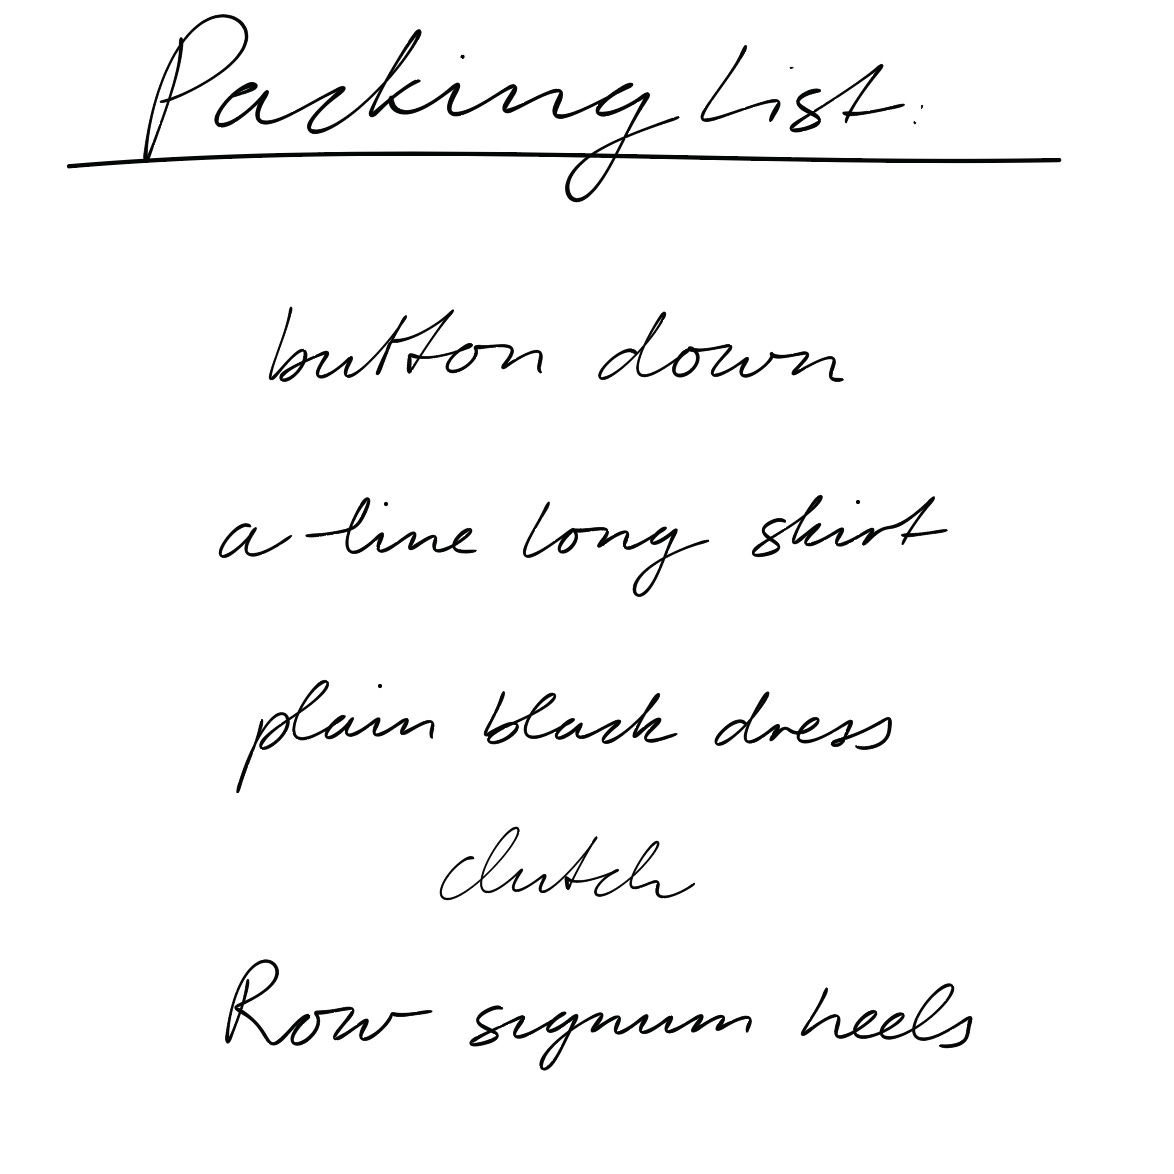 Packing List:
button down
a-line long skirt
plain black dress
clutch
Row signum heels